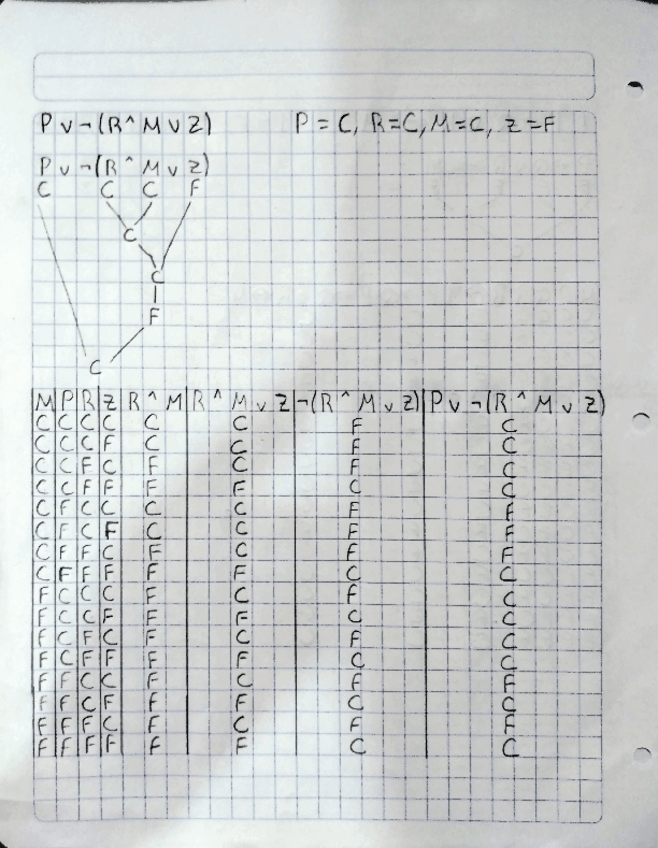 P ∨ ¬(R ^ M ∨ Z) P = C, R=C, M=C, Z=F
P ∨ ¬(R ^ M ∨ Z)
C C C F
C
C
F
C
M P R Z R ^ M R ^ M ∨ Z ¬(R ^ M ∨ Z) P ∨ ¬(R ^ M ∨ Z)
C C C C C C F C
C C C F C C F C
C C F C F C F C
C C F F F F C C
C F C C C C F F
C F C F C C F F
C F F C F C F F
C F F F F F C C
F C C C F C F C
F C C F F F C C
F C F C F C F C
F C F F F F C C
F F C C F C F F
F F C F F F C C
F F F C F C F F
F F F F F F C C